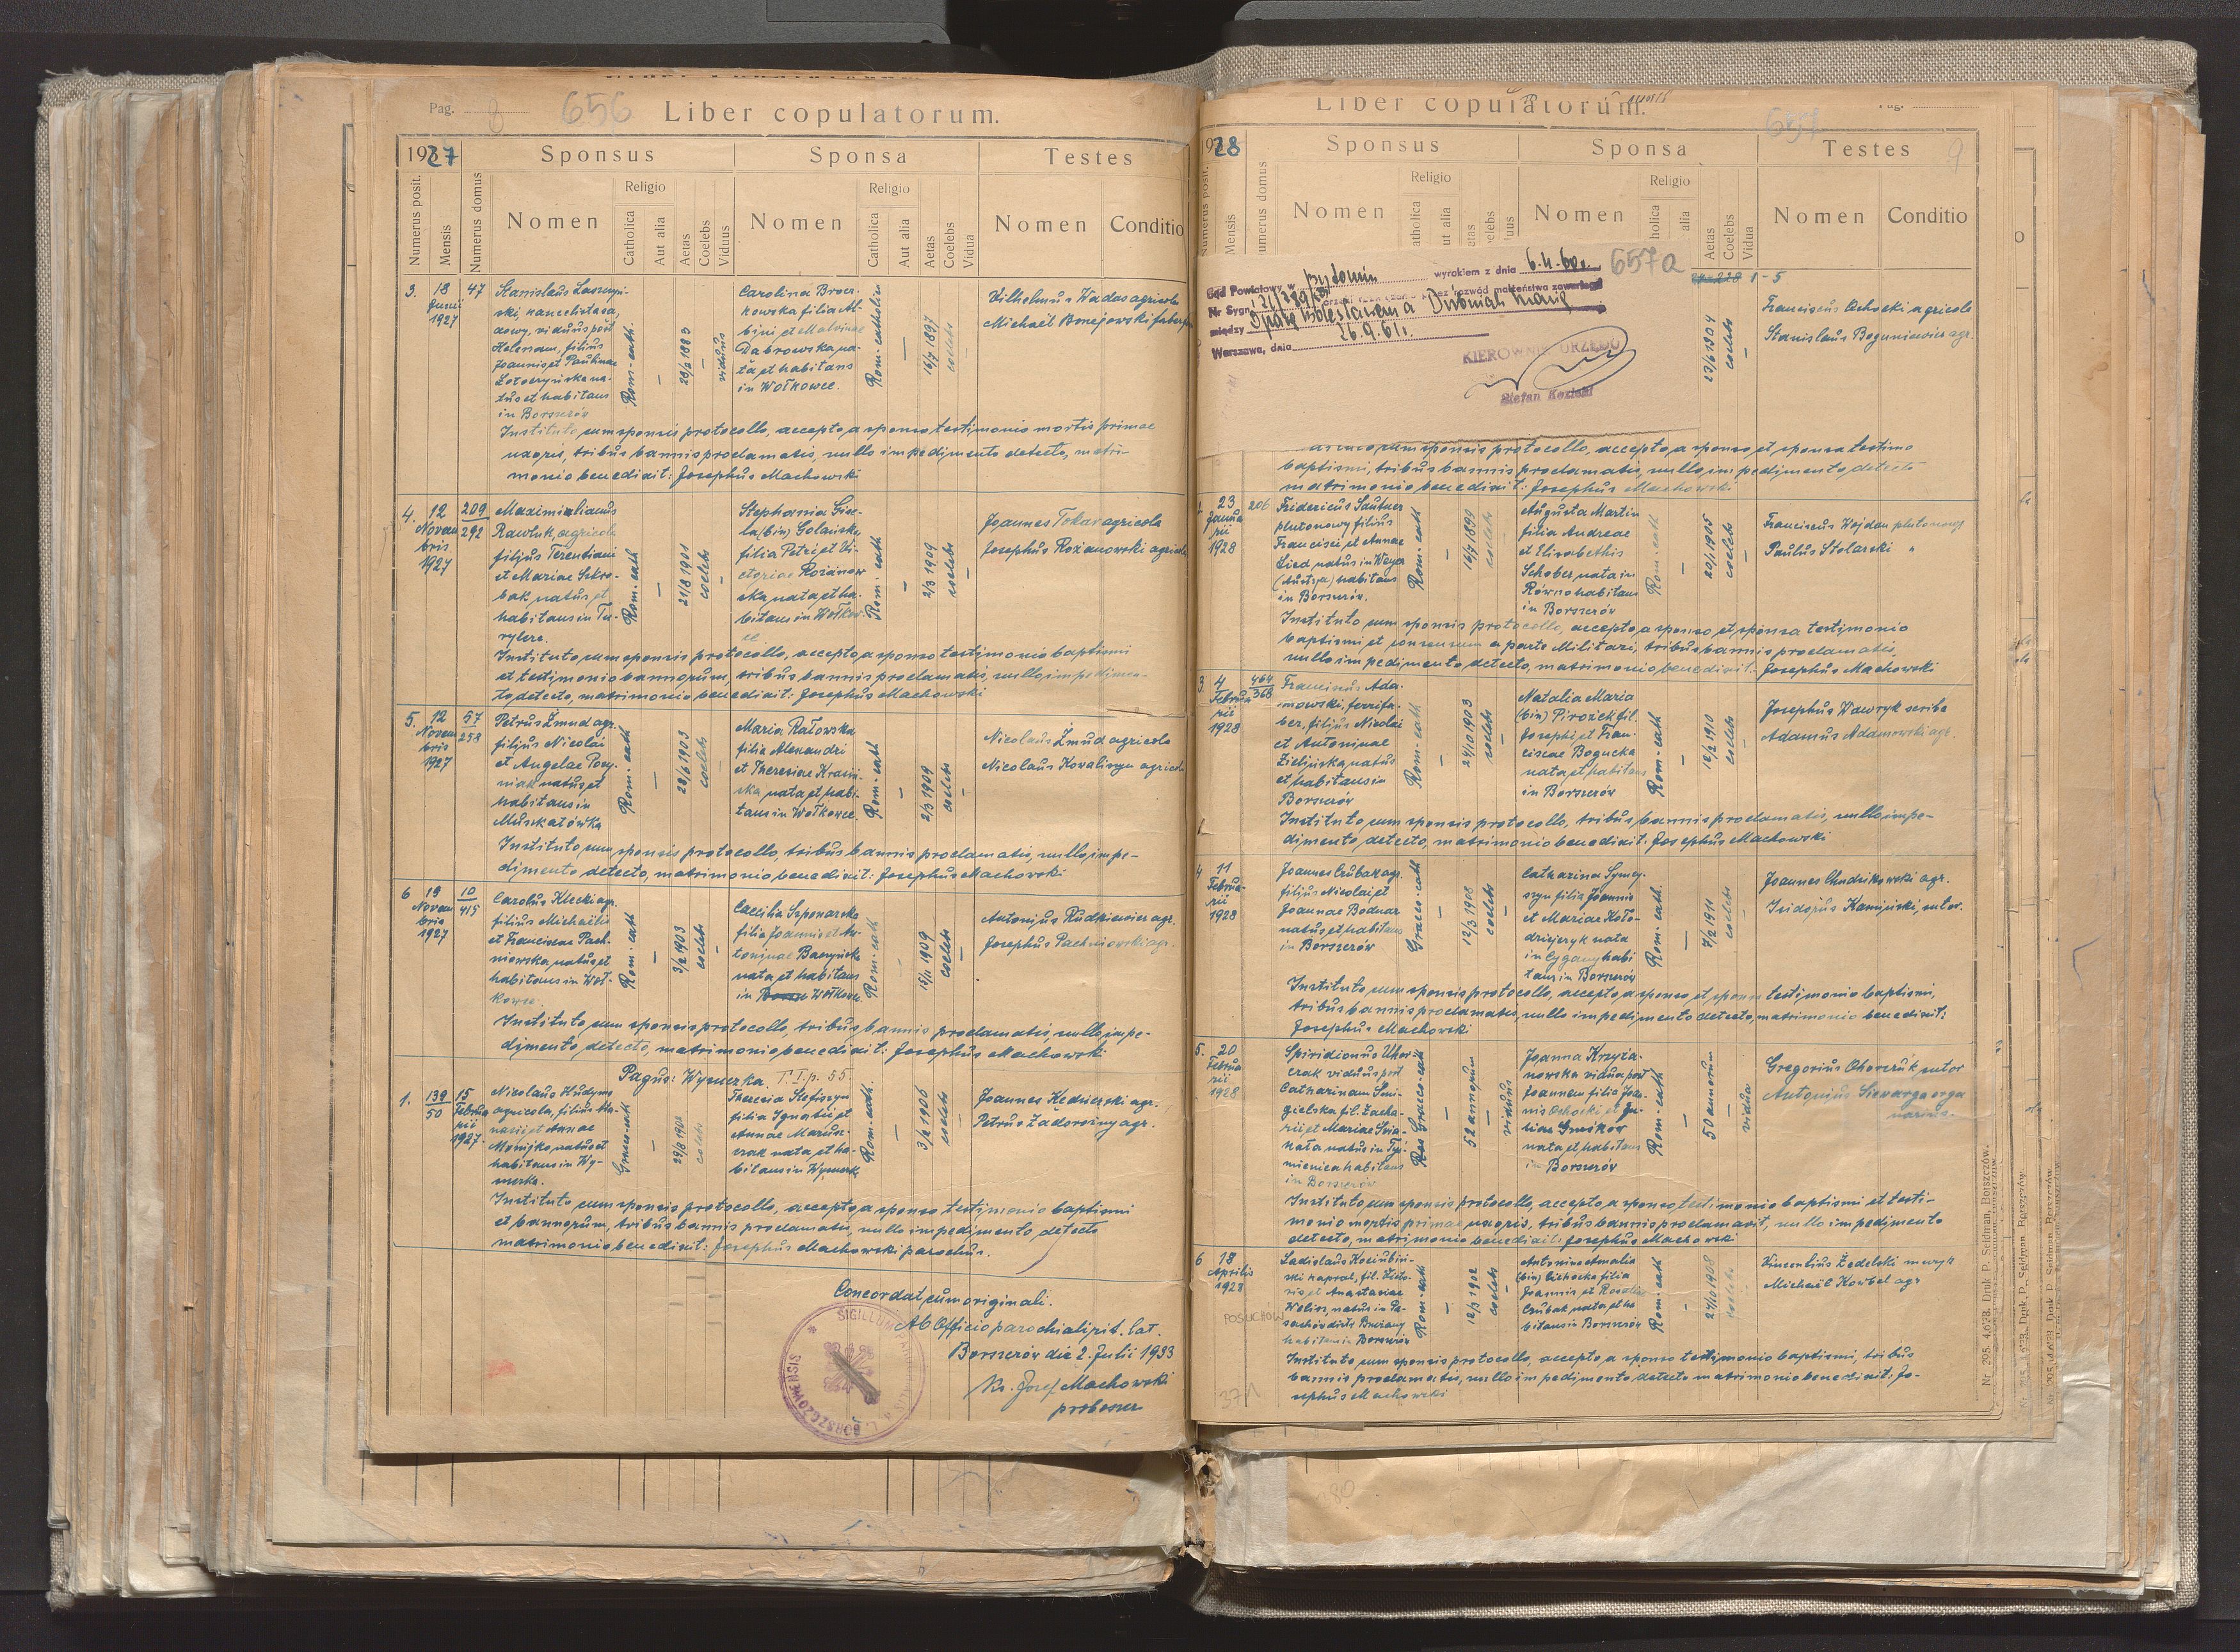 Pag. 8 656 Liber copulatorum.
1927 Sponsus Sponsa Testes
Numerus posit. Mensis Numerus domus Nomen Religio Catholica Aut alia Aetas Coelebs Viduus Nomen Religio Catholica Aut alia Aetas Coelebs Vidua Nomen Conditio
3. 18 Junii 1927 47
Stanislaus
ski kancelista są
dowy, viduus post
Helenam, filius
Joannis et Paulinae
na-
tus et habitans
in Borszczów
Rom-cath.
—
23/6 1883
—
viduus
Carolina Broer
kowska filia Al-
bini et Malvinae
Dąbrowska na-
ta et habitans
in Wołkowce.
Rom-catholic
—
16/7 1897
coelebs
Vilhelmus Wadas agricola
Michaël Bonejowski faber
Instituto cum sponsis protocollo, accepto a sponso testimonio mortis primae
uxoris, tribus bannis proclamatis, nullo impedimento detecto, matri-
monio benedixit: Josephus Machowski
4. 12 Novembris 1927 209/292
Maximilianus
Rawluk, agricola
filius Terentiani
et Mariae Skro-
bak natus et
habitans in Tu-
rylcze.
Rom-cath
—
21/8 1901
coelebs
—
Stephania Gise-
la (bin) Golańska
filia Petri et Vi-
ctoriae Rożanow
ska nata et ha-
bitans in Wołkow-
ce
Rom-cath
—
2/3 1909
coelebs
—
Joannes Tokar agricola
Josephus Rożanowski agricola
Instituto cum sponsis protocollo, accepto a sponso testimonio baptismi
et testimonio bannorum, tribus bannis proclamatis, nullo impedimen-
to detecto, matrimonio benedixit: Josephus Machowski
5. 12 Novembris 1927 57/258
Petrus Żmud agr.
filius Nicolai
et Angelae Pasy-
niak natus et
habitans in
Muszkatówka
Rom-cath
—
28/6 1903
coelebs
—
Maria Rałowska
filia Alexandri
et Theresiae Krasiń
ska nata et habi-
tans in Wołkowce
Rom-cath
—
2/3 1909
coelebs
—
Nicolaus Żmud agricola
Nicolaus Kowaliszyn agricola
Instituto cum sponsis protocollo, tribus bannis proclamatis, nullo impe-
dimento detecto, matrimonio benedixit: Josephus Machowski
6 19 Novembris 1927 10/415
Carolus Klecki agr.
filius Michaëlis
et Franciscae Pach-
niowska, natus et
habitans in Woł-
kowce.
Rom-cath
—
3/2 1903
coelebs
—
Caecilia Szponarska
filia Joannis et An-
toninae Baczyńska
nata et habitans
in Wołkowce
Rom-cath
—
15/11 1909
coelebs
—
Antonius Rudkiewicz agr.
Josephus Pachniowski agr.
Instituto cum sponsis protocollo, tribus bannis proclamatis, nullo impe-
dimento detecto, matrimonio benedixit: Josephus Machowski
Pagus: Wysuczka. T. I. p. 55.
1. 139/50 15 Februarii 1927
Nicolaus Hudyma
agricola, filius Ata-
nasii et Annae
Mońijko, natus et
habitans in Wy-
suczka.
Graeco-cath
—
29/8 1904
coelebs
Theresia Stefiszyn
filia Ignatii et
Annae Marusz-
czak nata et ha-
bitans in Wysuczk.
Rom-cath.
—
3/2 1906
coelebs
—
Joannes Kednierski agr.
Petrus Zadorożny agr.
Instituto cum sponsis protocollo, accepto a sponso testimonio baptismi
et bannorum, tribus bannis proclamatis, nullo impedimento detecto
matrimonio benedixit: Josephus Machowski parochus.
Concordat cum originali.
Ab Officio parochiali rit. lat.
Borszczów die 2. Julii 1933
Ks. Józef Machowski
proboszcz
SIGILLUM BORSZCZOWENSIS
Liber copulatorum. Pag. 9
657
1928 Sponsus Sponsa Testes
Numerus posit. Mensis Numerus domus Nomen Religio Catholica Aut alia Aetas Coelebs Viduus Nomen Religio Catholica Aut alia Aetas Coelebs Vidua Nomen Conditio
657a
Sąd Powiatowy w wyrokiem z dnia 6.4.60r.
Nr Sygn. orzekł rozwiązanie przez rozwód małżeństwa zawartego
między
Warszawa, dnia 26.9.61r.
KIEROWNIK URZĘDU
Stefan Kozioł
1-5
23/6 1904
coelebs
—
Franciscus Cichocki agricola
Stanislaus Boguniewicz agr.
cum sponsis protocollo, accepto a sponso et sponsa testimo
baptismi, tribus bannis proclamatis, nullo impedimento detecto
matrimonio benedixit: Josephus Machowski
2. 23 Januarii 1928 206
Fridericus Sautner
plutonowy filius
Francisci et Annae
Lied natus in Weyer
(Austrya) habitans
in Borszczów.
Rom-cath
—
16/7 1899
coelebs
Augusta Martin
filia Andreae
et Elisabethis
Schober nata in
Równo habitans
in Borszczów
Rom-cath
—
20/1 1905
coelebs
—
Franciscus Wojdan plutonowy
Paulus Stolarski "
Instituto cum sponsis protocollo, accepto a sponso et sponsa testimonio
baptismi et consensum a parte Militari, tribus bannis proclamatis,
nullo impedimento detecto, matrimonio benedixit: Josephus Machowski
3. 4 Februarii 1928 464/368
Franciscus Ada-
mowski, ferrifa-
ber, filius Nicolai
et Antoninae
Zielińska, natus
et habitans in
Borszczów
Rom-cath
—
24/10 1903
coelebs
—
Natalia Maria
(bin) Pirożek fil.
Josephi et Fran-
ciscae Bogucka
nata et habitans
in Borszczów
Rom-cath
—
12/2 1910
coelebs
—
Josephus Wawryk scriba
Adamus Adamowski agr.
Instituto cum sponsis protocollo, tribus bannis proclamatis, nullo impe-
dimento detecto, matrimonio benedixit: Josephus Machowski
4 11 Februarii 1928
Joannes Czubak agr.
filius Nicolai et
Joannae Bodnar
natus et habitans
in Borszczów
Graeco-cath
—
12/3 1908
coelebs
—
Catharina Symczy-
szyn filia Joannis
et Mariae Koło-
dziejczyk nata
in Cygany habi
tans in Borszczów
Rom-cath.
—
7/2 1911
coelebs
—
Joannes Chudzikowski agr.
Isidorus Kamiński, sutor.
Instituto cum sponsis protocollo, accepto a sponso et sponsa testimonio baptismi,
tribus bannis proclamatis, nullo impedimento detecto, matrimonio benedixit:
Josephus Machowski
5. 20 Februarii 1928
Spiridionus Uhor-
czak viduus post
Catharinam Smi-
gielska fil. Zacha-
rii et Mariae Snia-
nata natus in Tyś-
mienica habitans
in Borszczów
Graeco-cath
—
52 annorum
—
viduus
Joanna Krzyża-
nowska vidua post
Joannem filia Joan-
nis Cichocki et Ju-
liae Gruszków
nata et habitans
in Borszczów
Rom-cath
—
50 annorum
—
vidua
Gregorius Chorczuk sutor
Antonius Siewarga orga
narius
Instituto cum sponsis protocollo, accepto a sponso testimonio baptismi et testi-
monio mortis primae uxoris, tribus bannis proclamavit, nullo impedimento
detecto, matrimonio benedixit: Josephus Machowski
6 18 Aprilis 1928
Ladislaus Kociubiń-
ski kapral, fil. Victo-
ris et Anastasiae
Welisz, natus in Po-
suchów distr. Brzeżany
habitans in Borszczów
POSUCHÓW
Rom-cath
—
12/3 1902
coelebs
—
Antonina Amalia
(bin) Cichocka filia
Joannis et Rosaliae
Czubak nata et ha
bitans in Borszczów
Rom-cath
—
24/10 1908
coelebs
Vincentius Zadelski muzyk
Michaël Kowbel agr
Instituto cum sponsis protocollo, accepto a sponso testimonio baptismi, tribus
bannis proclamatis, nullo impedimento detecto matrimonio benedixit: Jo-
sephus Machowski
Nr. 295. 4.673. Druk P. Seidman, Borszczów.